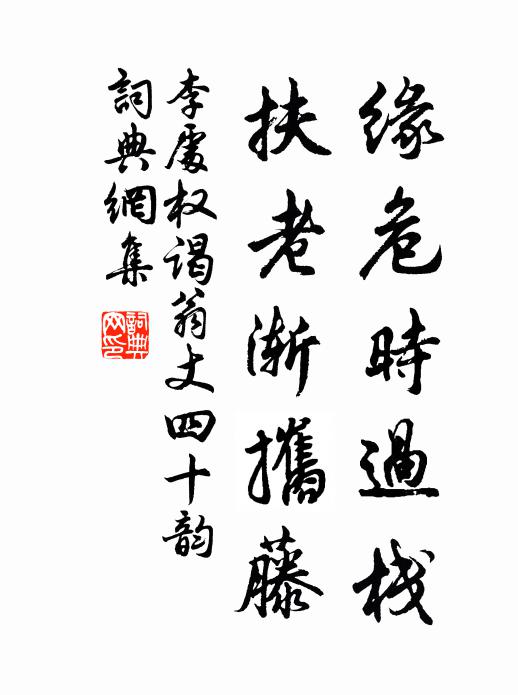 緣危時過棧
扶老漸攜藤
李處权谒翁丈四十韵
詞典網集
詞典网印